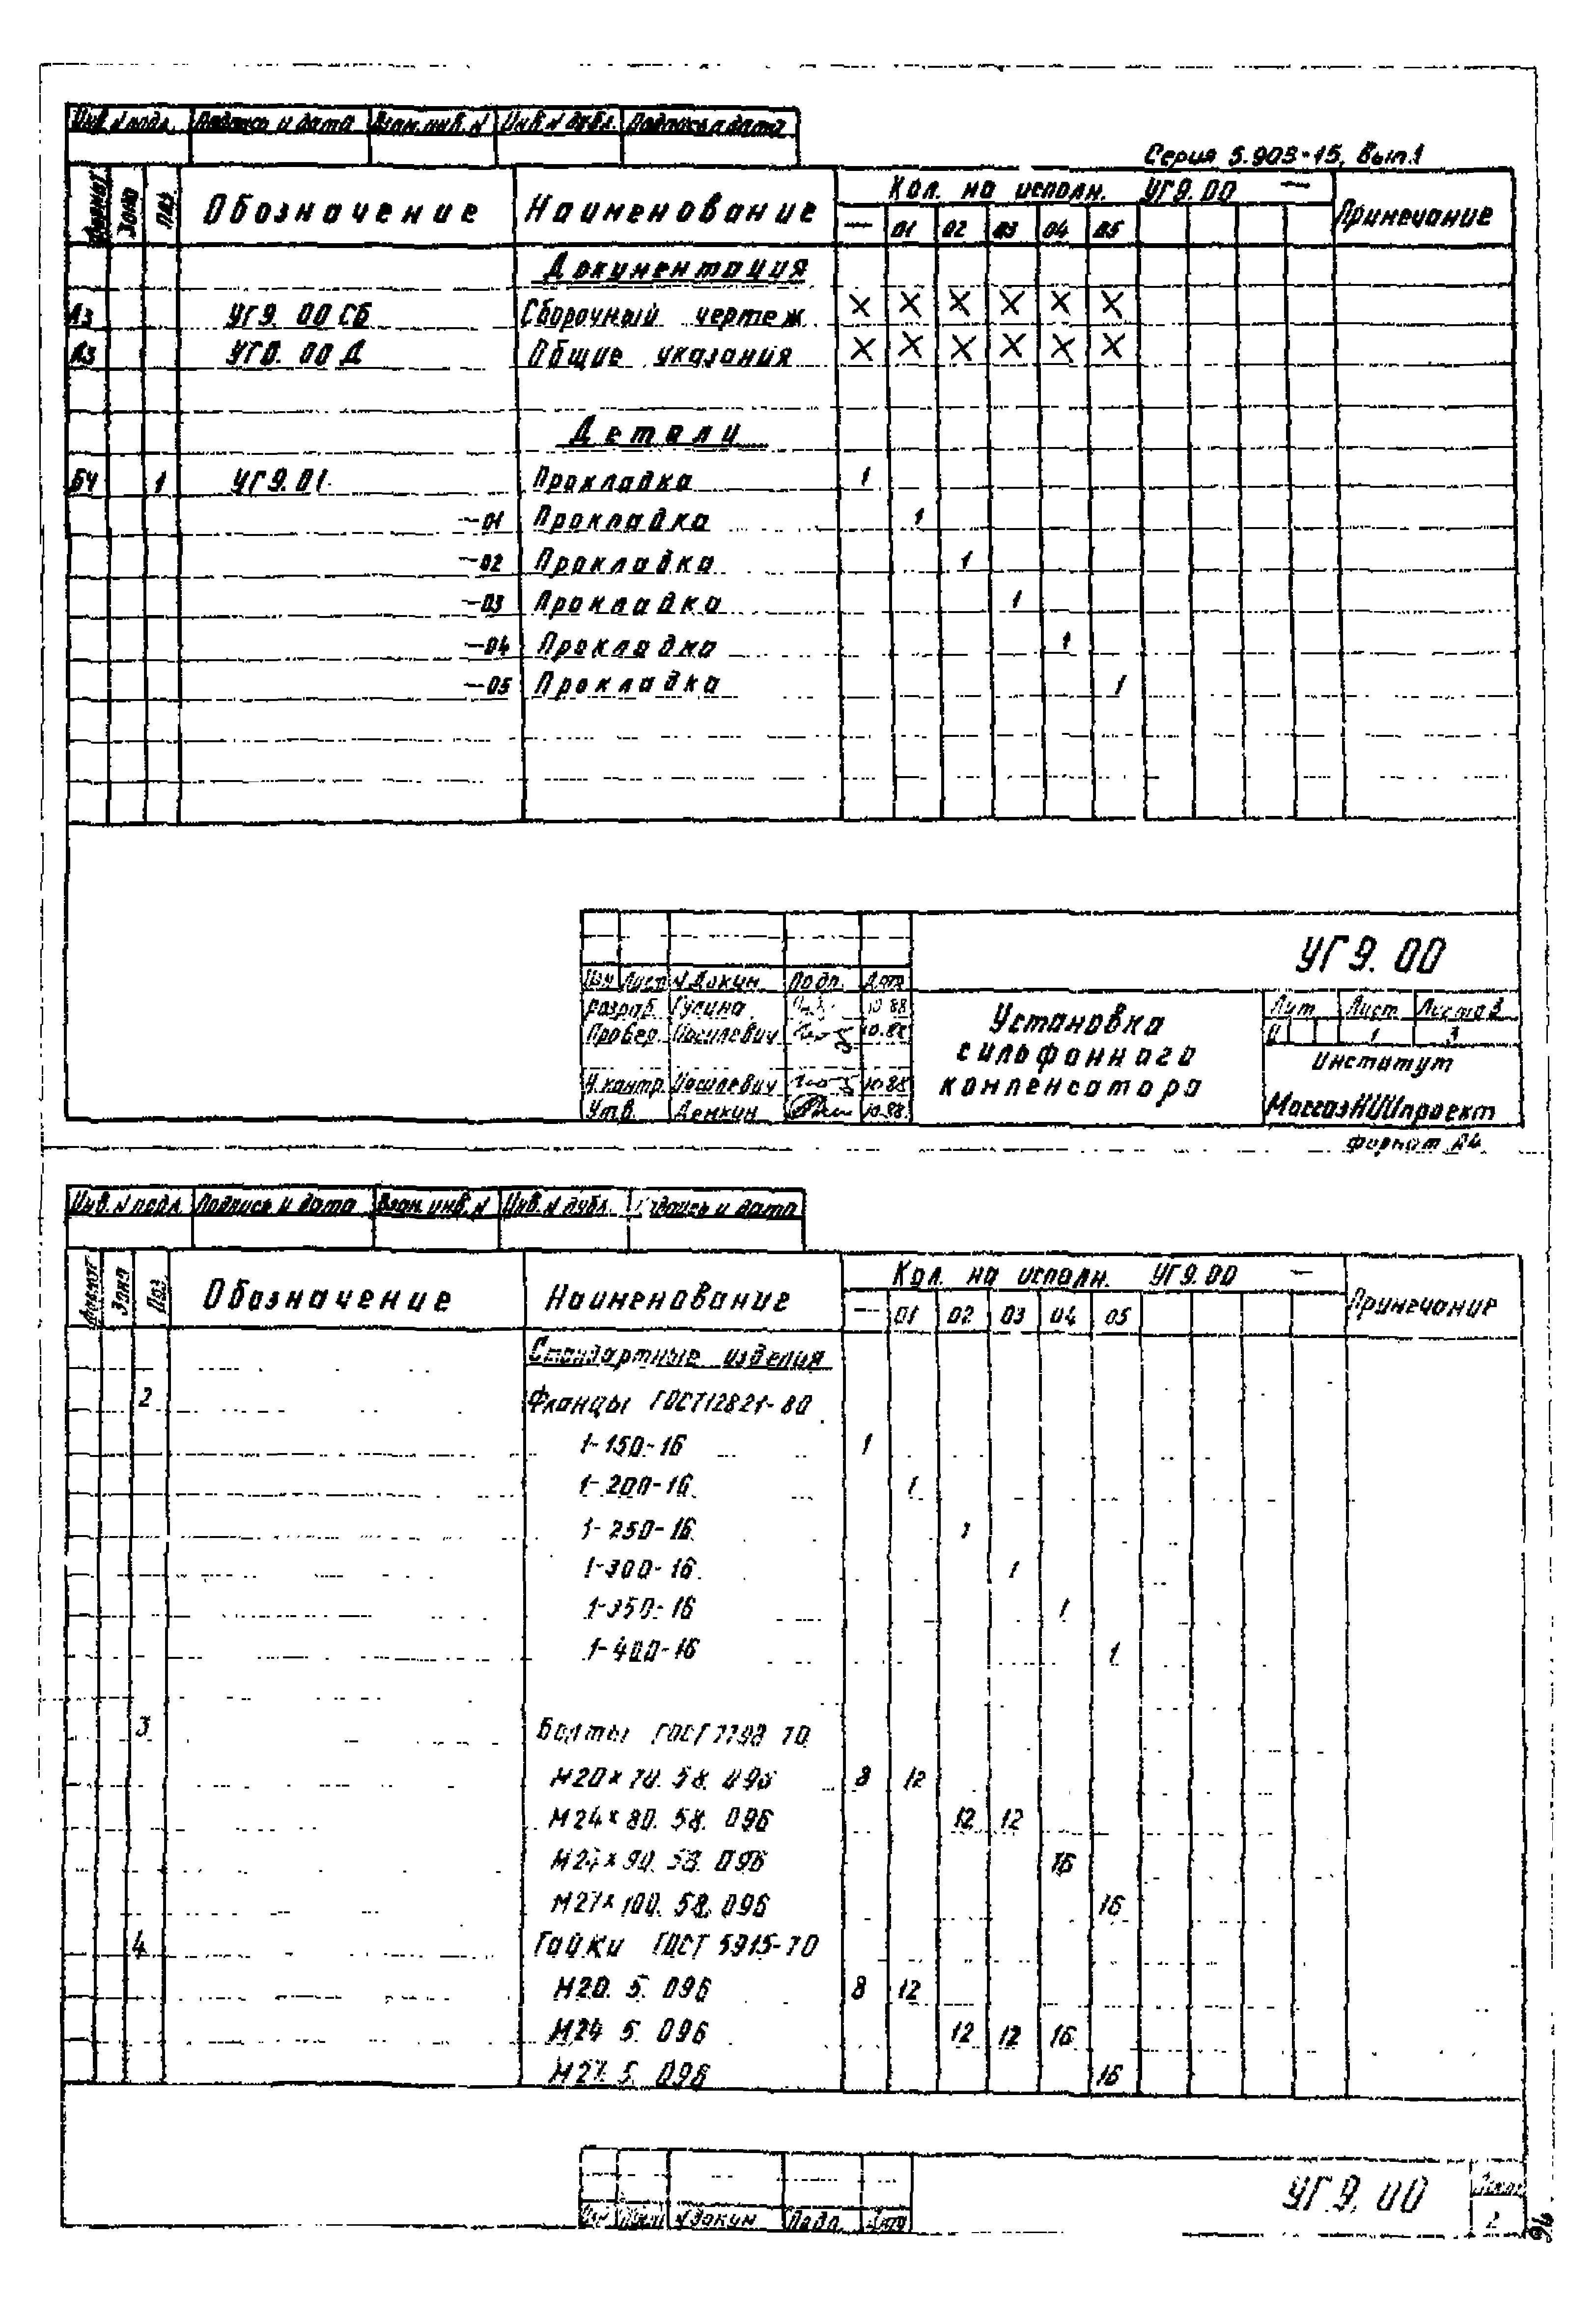 Инв. N подл. Подпись и дата Взам. инв. N Инв. N дубл. Подпись и дата
Серия 5.903-15, Вып.1
Формат Зона Поз. Обозначение Наименование Кол. на исполн. УГ9.00 — Примечание
— 01 02 03 04 05
Документация
А3 УГ9.00 СБ Сборочный чертеж X X X X X X
А3 УГ0.00 Д Общие указания X X X X X X
Детали
БЧ 1 УГ9.01 Прокладка 1
—01 Прокладка 1
—02 Прокладка 1
—03 Прокладка 1
—04 Прокладка 1
—05 Прокладка 1
УГ9.00
Изм Лист N Докум. Подп. Дата
Разраб. Гусина 10.88
Провер. Иосилевич 10.88
Н.контр. Иосилевич 10.88
Утв. Демкин 10.88
Установка
сильфонного
компенсатора
Лит. Лист Листов 3
И 1 3
Институт
МосгазНИИпроект
Формат А4
Инв. N подл. Подпись и дата Взам. инв. N Инв. N дубл. Подпись и дата
Формат Зона Поз. Обозначение Наименование Кол. на исполн. УГ9.00 — Примечание
— 01 02 03 04 05
Стандартные изделия
2 Фланцы ГОСТ12821-80
1-150-16 1
1-200-16 1
1-250-16 1
1-300-16 1
1-350-16 1
1-400-16 1
3 Болты ГОСТ 7798 70
М20×70. 58. 096 8 12
М24×80. 58. 096 12 12
М24×90. 58. 096 16
М27×100. 58. 096 16
4 Гайки ГОСТ 5915-70
М20. 5. 096 8 12
М24 5. 096 12 12 16
М27. 5. 096 16
Изм Лист N докум Подп. Дата
УГ9.00
Лист
2
94